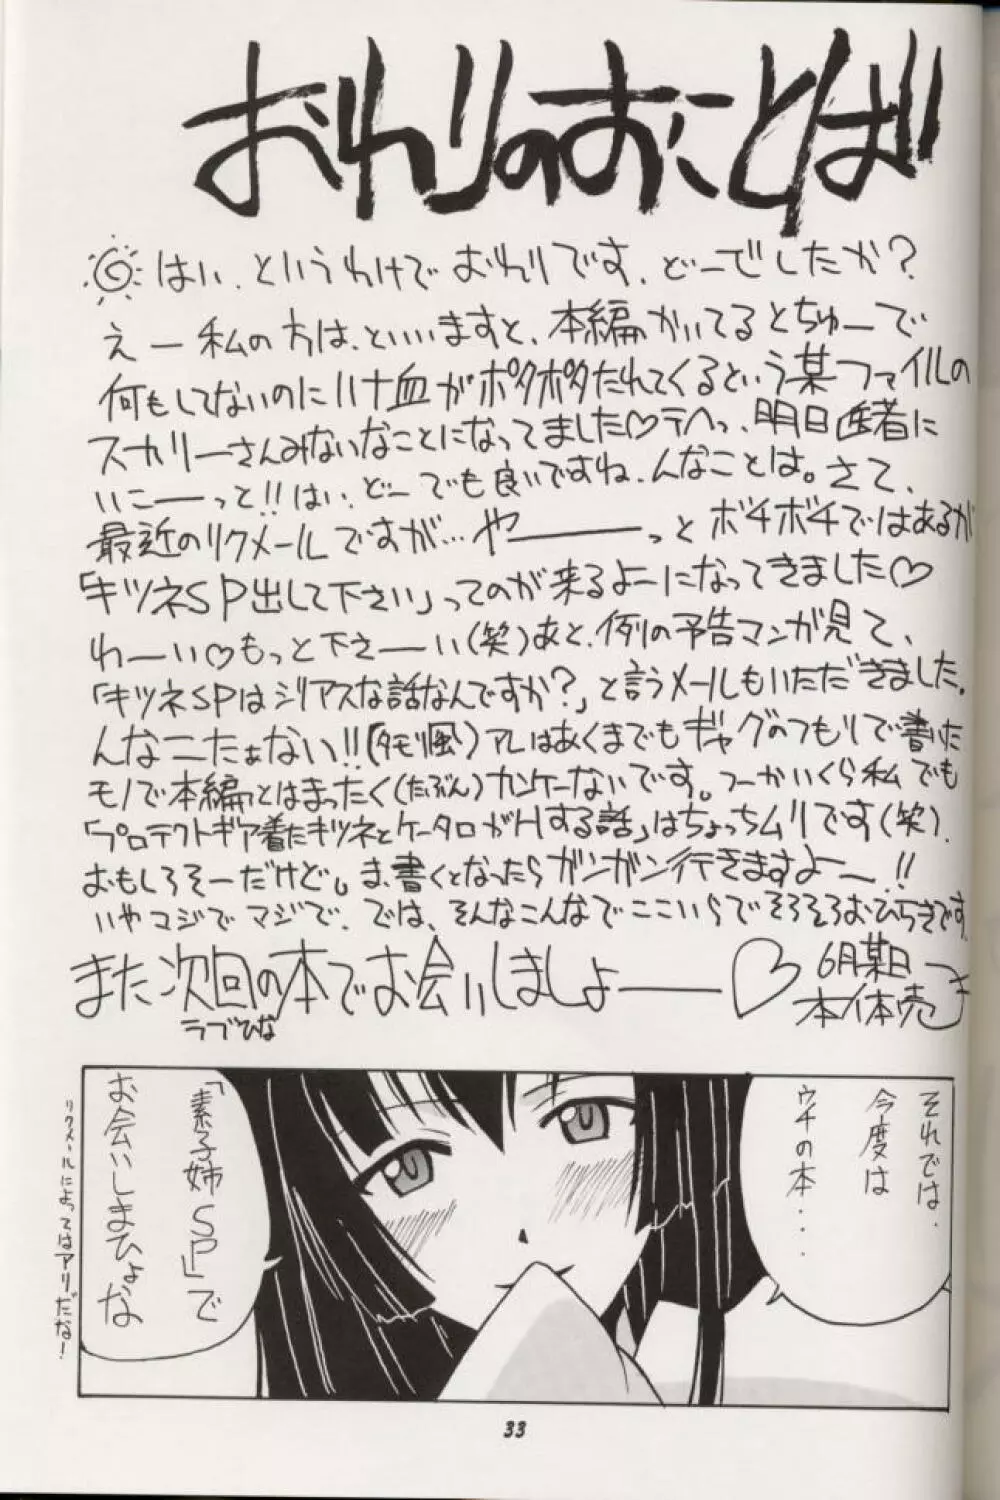 おわりのおことば
はい、というわけでおわりです、どーでしたか？
えー私の方は、といいますと、本編かいてるとちゅーで
何もしてないのにハナ血がポタポタたれてくるという某ファイルの
スカリーさんみないなことになってました♡テヘっ、明日医者に
いこーーっと!!はい、どーでも良いですね、んなことは。さて、
最近のリクメールですが…やーーーっとボチボチではあるが
「キツネSP出して下さい」ってのが来るよーになってきました♡
わーーい♡もっと下さーーい(笑)あと、例の予告マンガ見て、
「キツネSPはシリアスな話なんですか？」と言うメールもいただきました。
んなこたぁない!!(タモリ風)アレはあくまでもギャグのつもりで書いた
モノで本編とはまったく(たぶん)カンケーないです。つーかいくら私でも
「プロテクトギア着たキツネとケータロがHする話」はちょっちムリです(笑)、
おもしろそーだけど。ま、書くとなったらガンガン行きますよー!!
いやマジでマジで、では、そんなこんなでここいらでそろそろおひらきです。
また次回の本でお会いしましょーー♡
ラブひな
6月某日
本体売
それでは、
今度は
ウチの本...
「素子姉SP」で
お会いしまひょな
リクメールによってはアリだな！
33